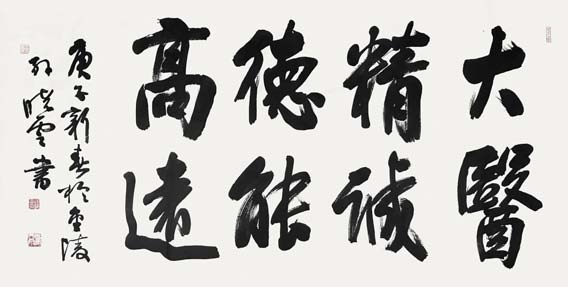 大醫
精誠
德能
高遠
庚子新春於金陵
孙晓雲書